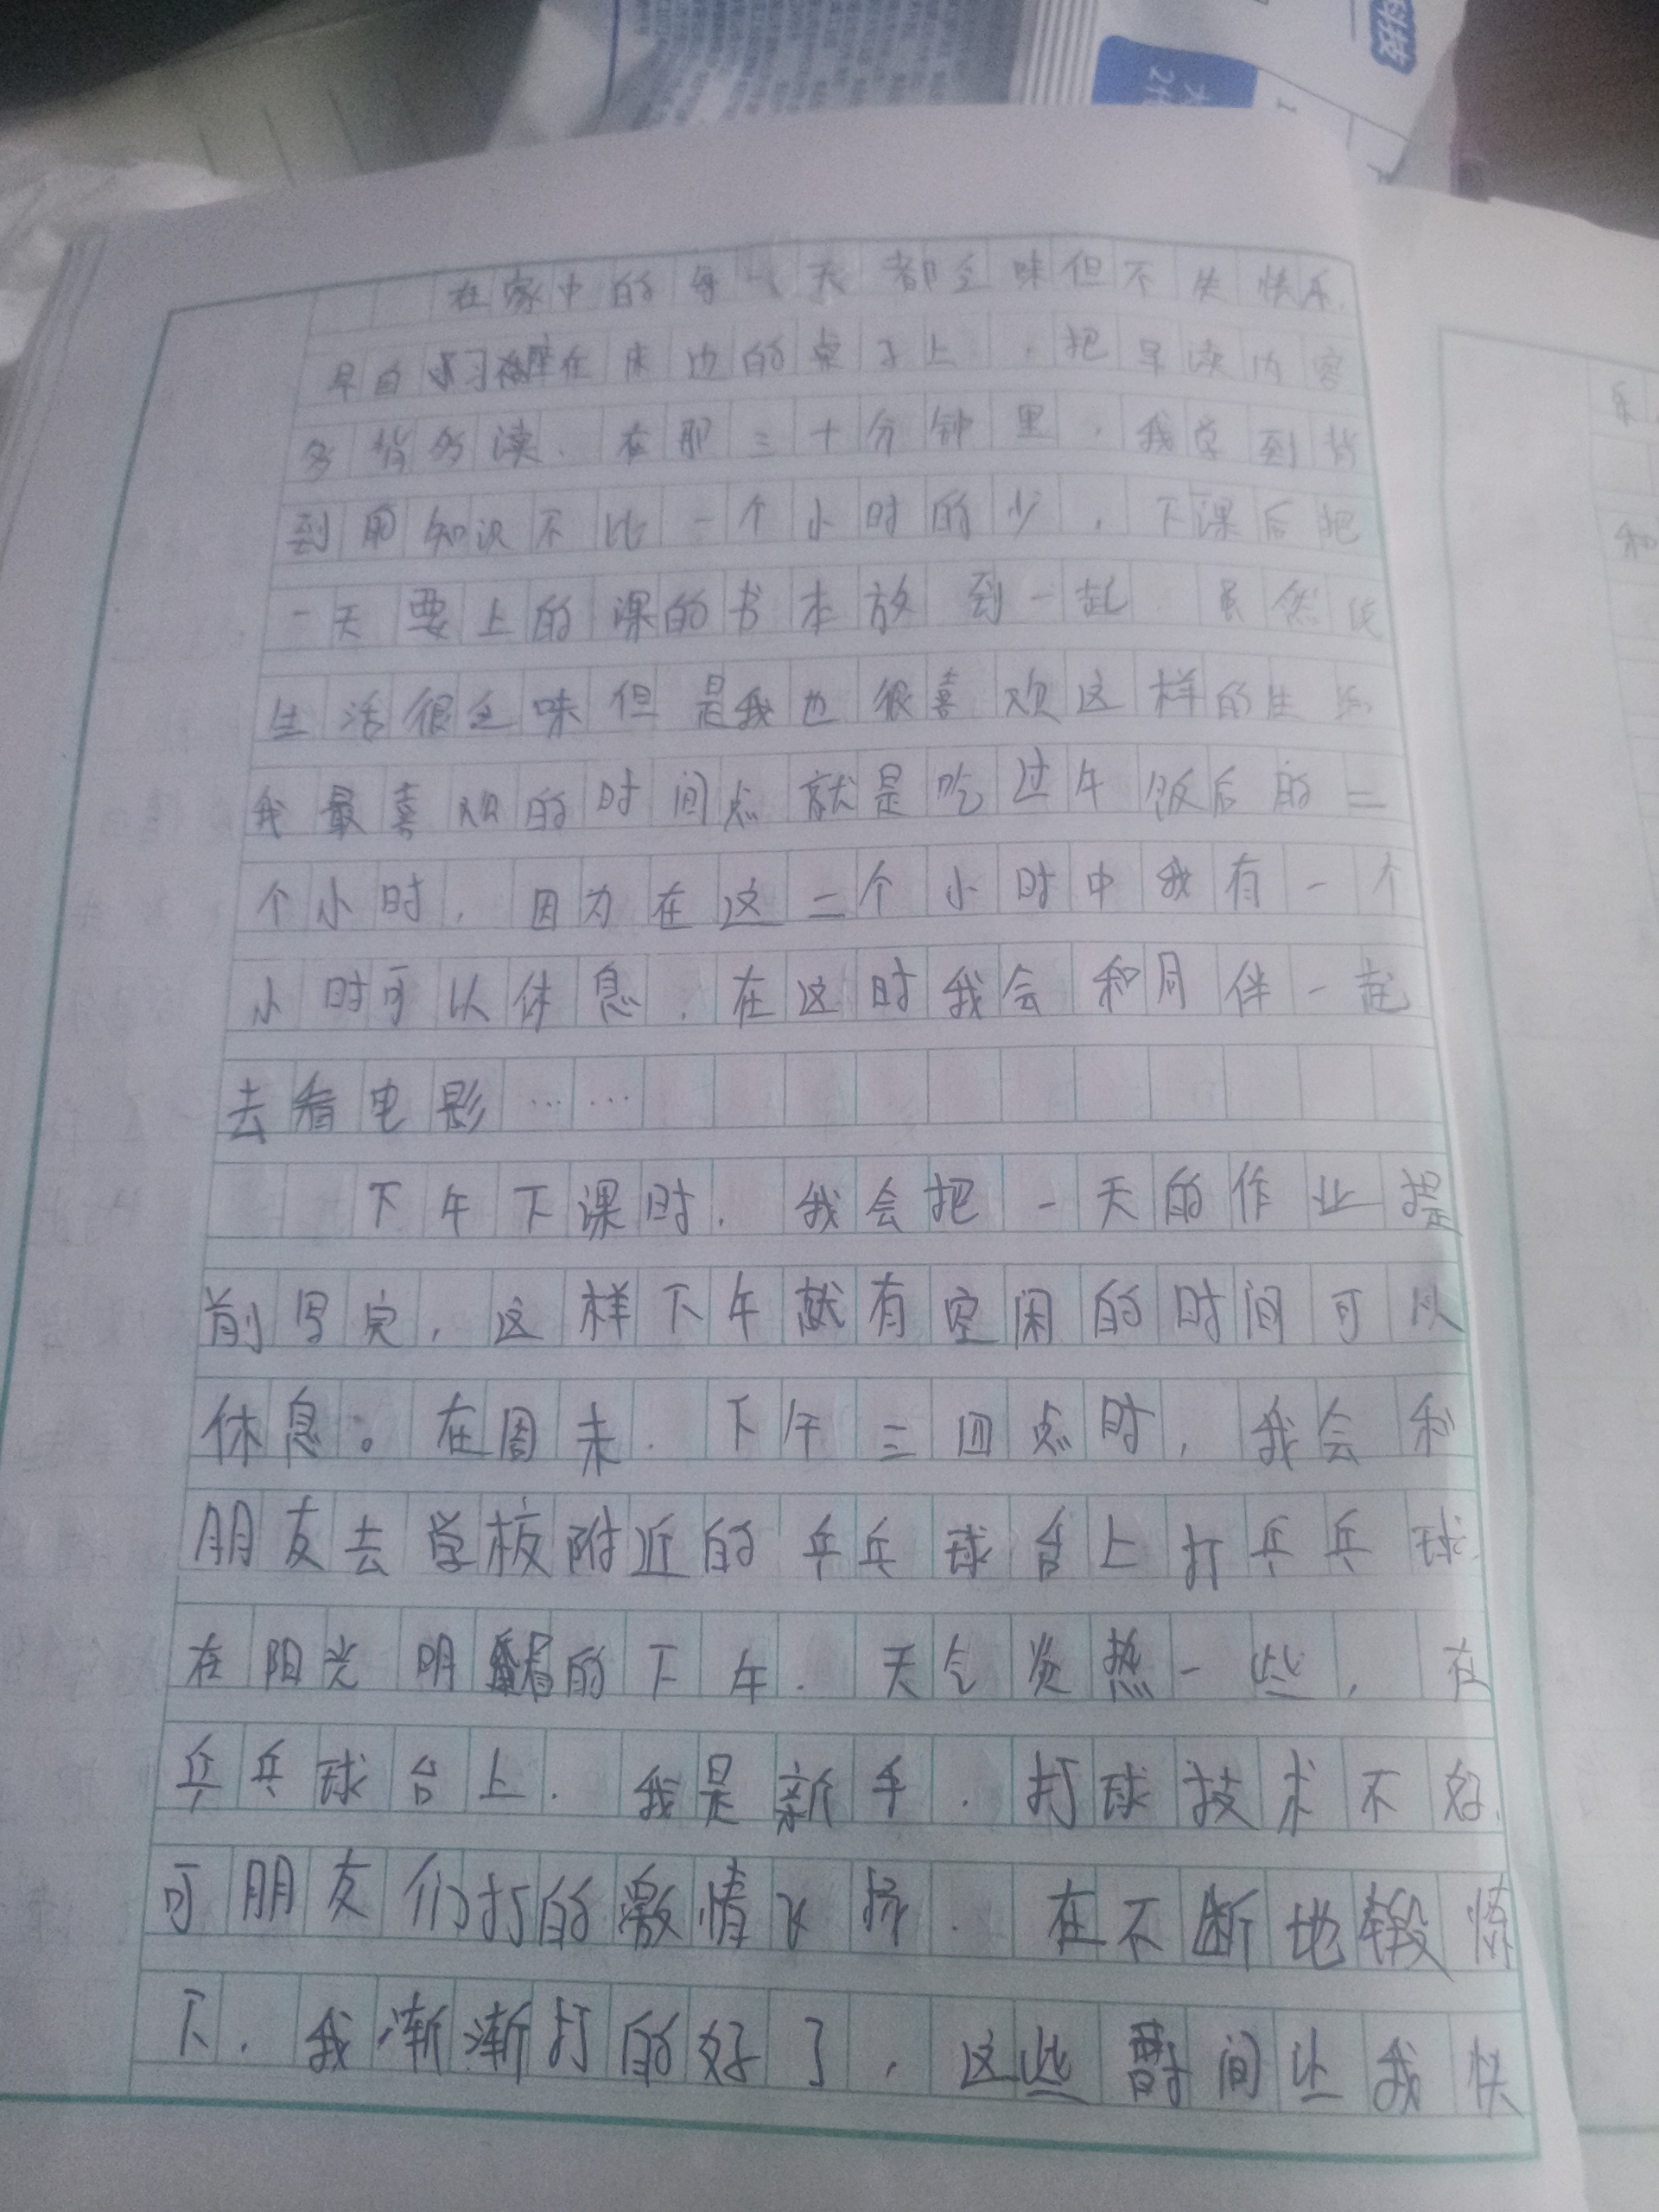 科技
在家中的每一天都乏味但不失快乐.
早自习在床边的桌子上,把早读内容
多背多读.在那三十分钟里,我学到背
到的知识不比一个小时的少,下课后把
一天要上的课的书本放到一起 虽然
生活很乏味但是我也很喜欢这样的生
我最喜欢的时间点就是吃过午饭后的二
个小时,因为在这二个小时中我有一个
小时可以休息.在这时我会和同伴一起
去看电影……
下午下课时.我会把一天的作业提
前写完,这样下午就有空闲的时间可以
休息。在周末.下午三四点时,我会和
朋友去学校附近的乒乓球台上打乒乓球.
在阳光明媚的下午.天气炎热一些,在
乒乓球台上.我是新手.打球技术不好.
可朋友们打的激情飞扬.在不断地锻炼
下.我渐渐打的好了,这些时间让我快
乐
和